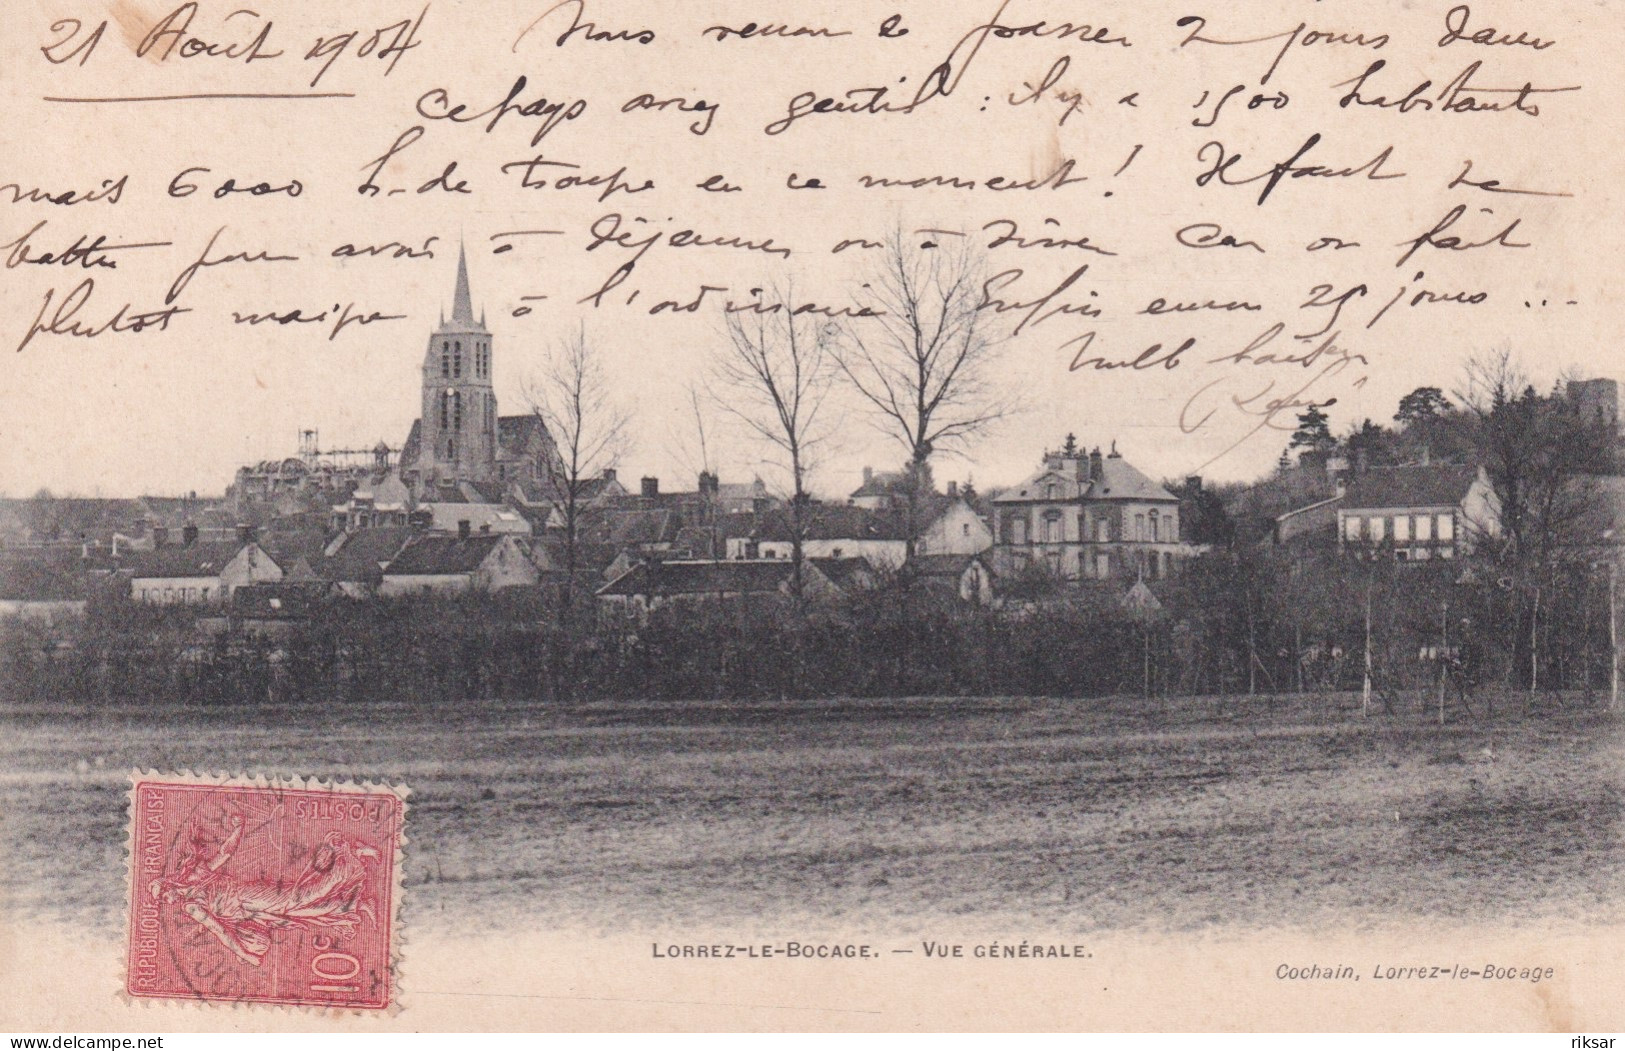 21 Août 1904 Nous venons de passer 2 jours dans
ce pays assez gentil : il y a 1500 habitants
mais 6000 h. de troupe en ce moment ! Il faut se
battre pour avoir à déjeuner ou à dîner car on fait
plutôt maigre à l'ordinaire. Enfin encore 25 jours ...
Mille baisers
RÉPUBLIQUE FRANÇAISE
POSTES
10c
04
LORREZ-LE-BOCAGE. — VUE GÉNÉRALE.
Cochain, Lorrez-le-Bocage
riksar